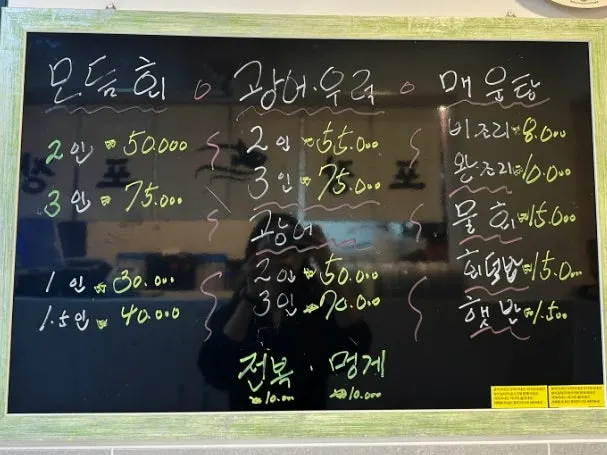 모듬회
2인 50.000
3인 75.000
1인 30.000
1.5인 40.000
광어.우럭
2인 55.000
3인 75.000
광어
2인 50.000
3인 70.000
매운탕
비조리 8.000
완조리 10.000
물회 15.000
회덮밥 15.000
햇반 1.500
전복 . 멍게
10.000 10.000